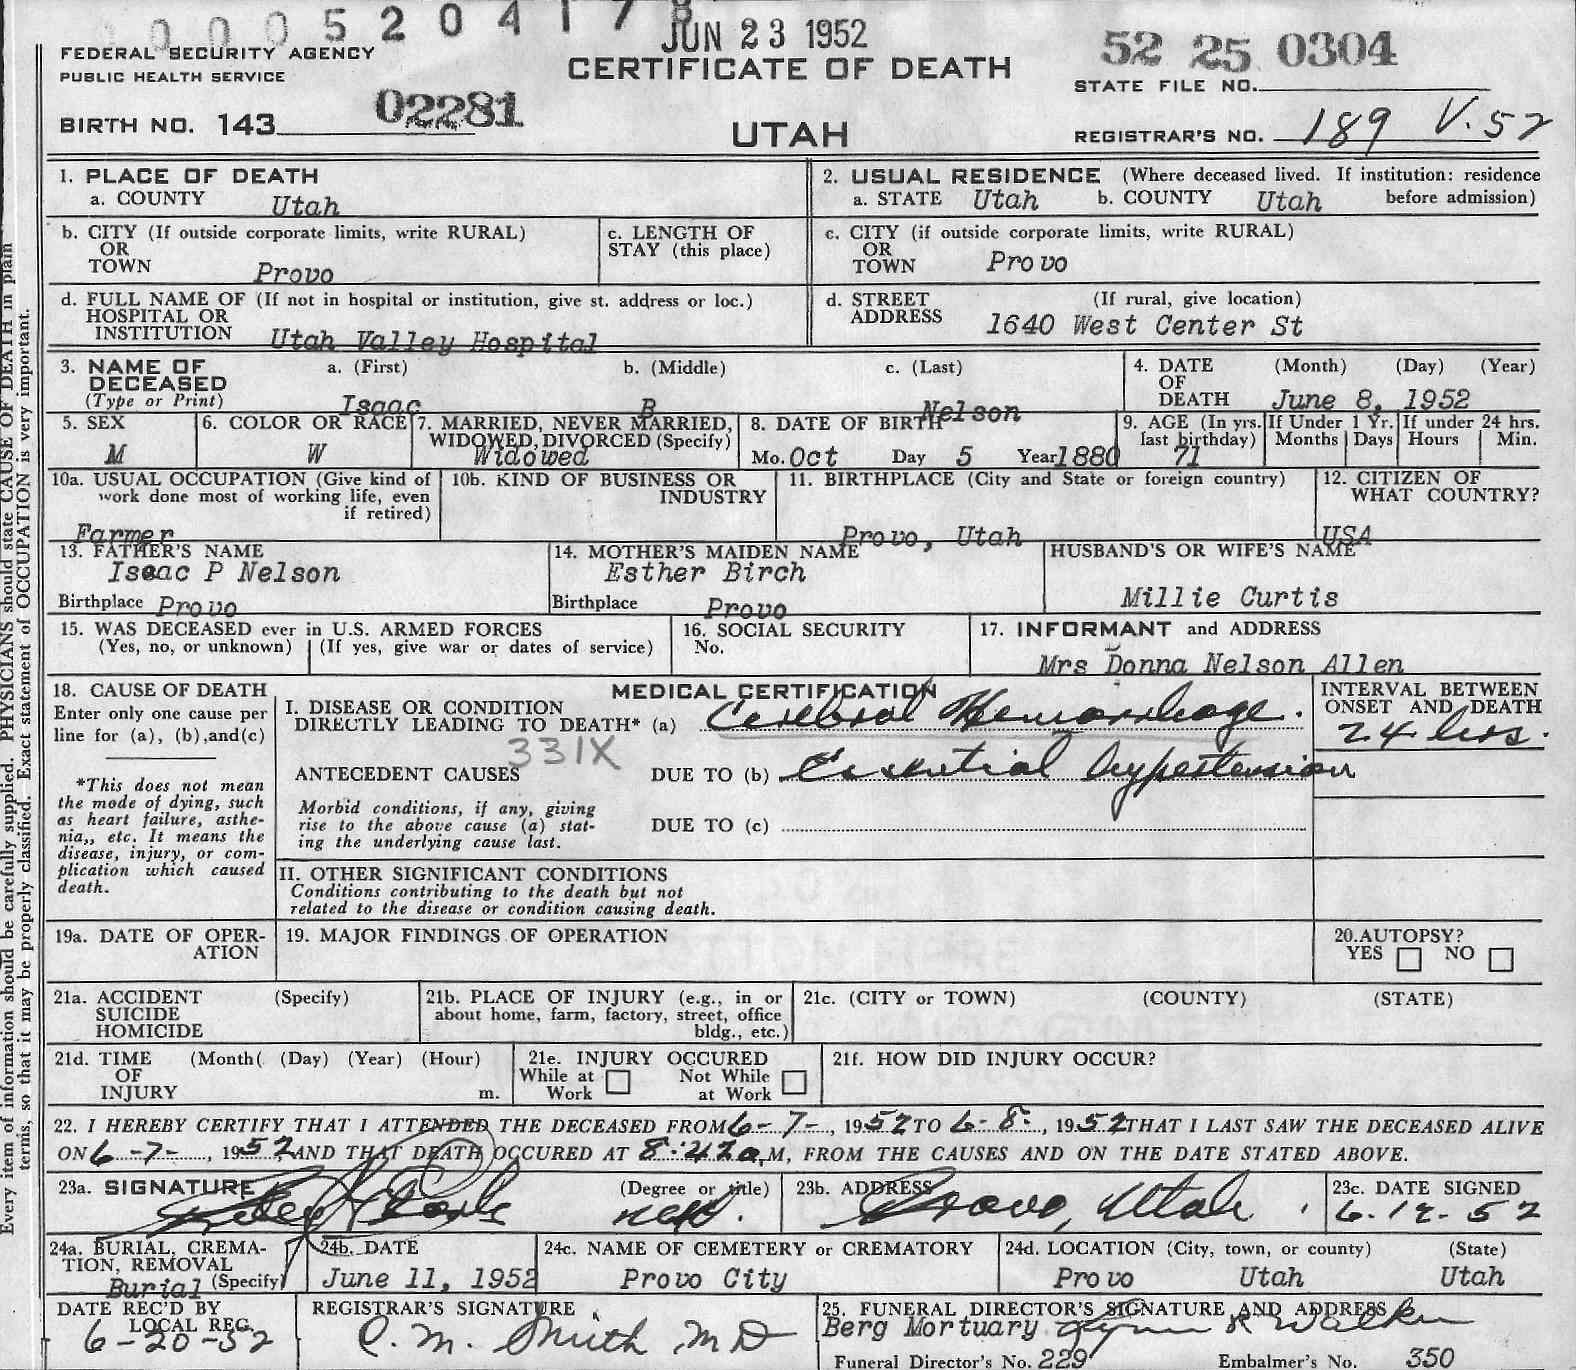 0005204178
JUN 23 1952
52 25 0304
FEDERAL SECURITY AGENCY
PUBLIC HEALTH SERVICE
CERTIFICATE OF DEATH
STATE FILE NO.
BIRTH NO. 143 02281
UTAH
REGISTRAR'S NO. 189 V.52
1. PLACE OF DEATH
a. COUNTY Utah
2. USUAL RESIDENCE (Where deceased lived. If institution: residence
a. STATE Utah b. COUNTY Utah before admission)
b. CITY (If outside corporate limits, write RURAL)
OR
TOWN Provo
c. LENGTH OF
STAY (this place)
c. CITY (if outside corporate limits, write RURAL)
OR
TOWN Provo
d. FULL NAME OF (If not in hospital or institution, give st. address or loc.)
HOSPITAL OR
INSTITUTION Utah Valley Hospital
d. STREET (If rural, give location)
ADDRESS 1640 West Center St
3. NAME OF a. (First) b. (Middle) c. (Last)
DECEASED
(Type or Print) Isaac B Nelson
4. DATE (Month) (Day) (Year)
OF
DEATH June 8, 1952
5. SEX
M
6. COLOR OR RACE
W
7. MARRIED, NEVER MARRIED,
WIDOWED, DIVORCED (Specify)
Widowed
8. DATE OF BIRTH
Mo. Oct Day 5 Year 1880
9. AGE (In yrs.
last birthday)
71
If Under 1 Yr.
Months Days
If under 24 hrs.
Hours Min.
10a. USUAL OCCUPATION (Give kind of
work done most of working life, even
if retired)
Farmer
10b. KIND OF BUSINESS OR
INDUSTRY
11. BIRTHPLACE (City and State or foreign country)
Provo, Utah
12. CITIZEN OF
WHAT COUNTRY?
USA
13. FATHER'S NAME
Isaac P Nelson
Birthplace Provo
14. MOTHER'S MAIDEN NAME
Esther Birch
Birthplace Provo
HUSBAND'S OR WIFE'S NAME
Millie Curtis
15. WAS DECEASED ever in U.S. ARMED FORCES
(Yes, no, or unknown) (If yes, give war or dates of service)
16. SOCIAL SECURITY
No.
17. INFORMANT and ADDRESS
Mrs Donna Nelson Allen
18. CAUSE OF DEATH
Enter only one cause per
line for (a), (b),and(c)
*This does not mean
the mode of dying, such
as heart failure, asthe-
nia,, etc. It means the
disease, injury, or com-
plication which caused
death.
MEDICAL CERTIFICATION
I. DISEASE OR CONDITION
DIRECTLY LEADING TO DEATH* (a) Cerebral Hemorrhage.
331X
ANTECEDENT CAUSES DUE TO (b) Essential hypertension
Morbid conditions, if any, giving
rise to the above cause (a) stat-
ing the underlying cause last.
DUE TO (c)
INTERVAL BETWEEN
ONSET AND DEATH
24 hrs.
II. OTHER SIGNIFICANT CONDITIONS
Conditions contributing to the death but not
related to the disease or condition causing death.
19a. DATE OF OPER-
ATION
19. MAJOR FINDINGS OF OPERATION
20. AUTOPSY?
YES NO
21a. ACCIDENT (Specify)
SUICIDE
HOMICIDE
21b. PLACE OF INJURY (e.g., in or
about home, farm, factory, street, office
bldg., etc.)
21c. (CITY or TOWN) (COUNTY) (STATE)
21d. TIME (Month( (Day) (Year) (Hour)
OF
INJURY m.
21e. INJURY OCCURED
While at Not While
Work at Work
21f. HOW DID INJURY OCCUR?
22. I HEREBY CERTIFY THAT I ATTENDED THE DECEASED FROM 6-7-, 1952 TO 6-8-, 1952 THAT I LAST SAW THE DECEASED ALIVE
ON 6-7-, 1952 AND THAT DEATH OCCURED AT 8:42 a.M, FROM THE CAUSES AND ON THE DATE STATED ABOVE.
23a. SIGNATURE (Degree or title)
23b. ADDRESS
Provo, Utah
23c. DATE SIGNED
6-12-52
24a. BURIAL, CREMA-
TION, REMOVAL
Burial (Specify)
24b. DATE
June 11, 1952
24c. NAME OF CEMETERY or CREMATORY
Provo City
24d. LOCATION (City, town, or county) (State)
Provo Utah Utah
DATE REC'D BY
LOCAL REG.
6-20-52
REGISTRAR'S SIGNATURE
C. M. Smith, MD
25. FUNERAL DIRECTOR'S SIGNATURE AND ADDRESS
Berg Mortuary Lynn R Walker
Funeral Director's No. 229 Embalmer's No. 350
Every item of information should be carefully supplied. PHYSICIANS should state CAUSE OF DEATH in plain
terms, so that it may be properly classified. Exact statement of OCCUPATION is very important.